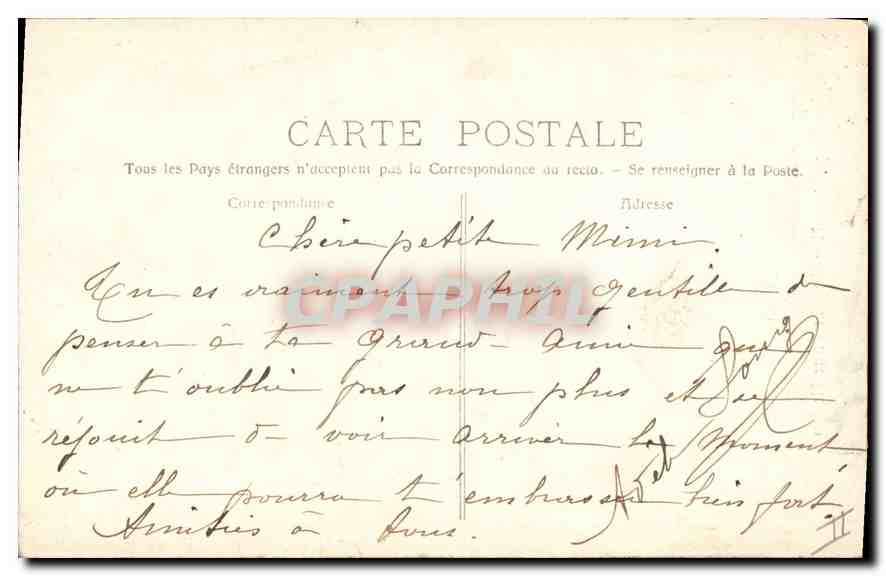 CARTE POSTALE
Tous les Pays étrangers n'acceptent pas la Correspondance au recto. - Se renseigner à la Poste.
Correspondance Adresse
Chère petite Mimi.
Tu es vraiment trop gentille de
penser à ta grand-amie qui
ne t'oublie pas non plus et se
réjouit de voir arriver le moment
où elle pourra t'embrasser bien fort.
Amitiés à tous.
CPAPHIL
II